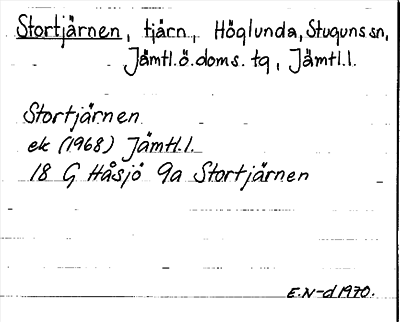 Stortjärnen, tjärn, Höglunda, Stuguns sn,
Jämtl.ö.doms. tg, Jämtl.l.
Stortjärnen
ek (1968) Jämtl.l.
18 G Håsjö 9a Stortjärnen
E.N-d 1970.